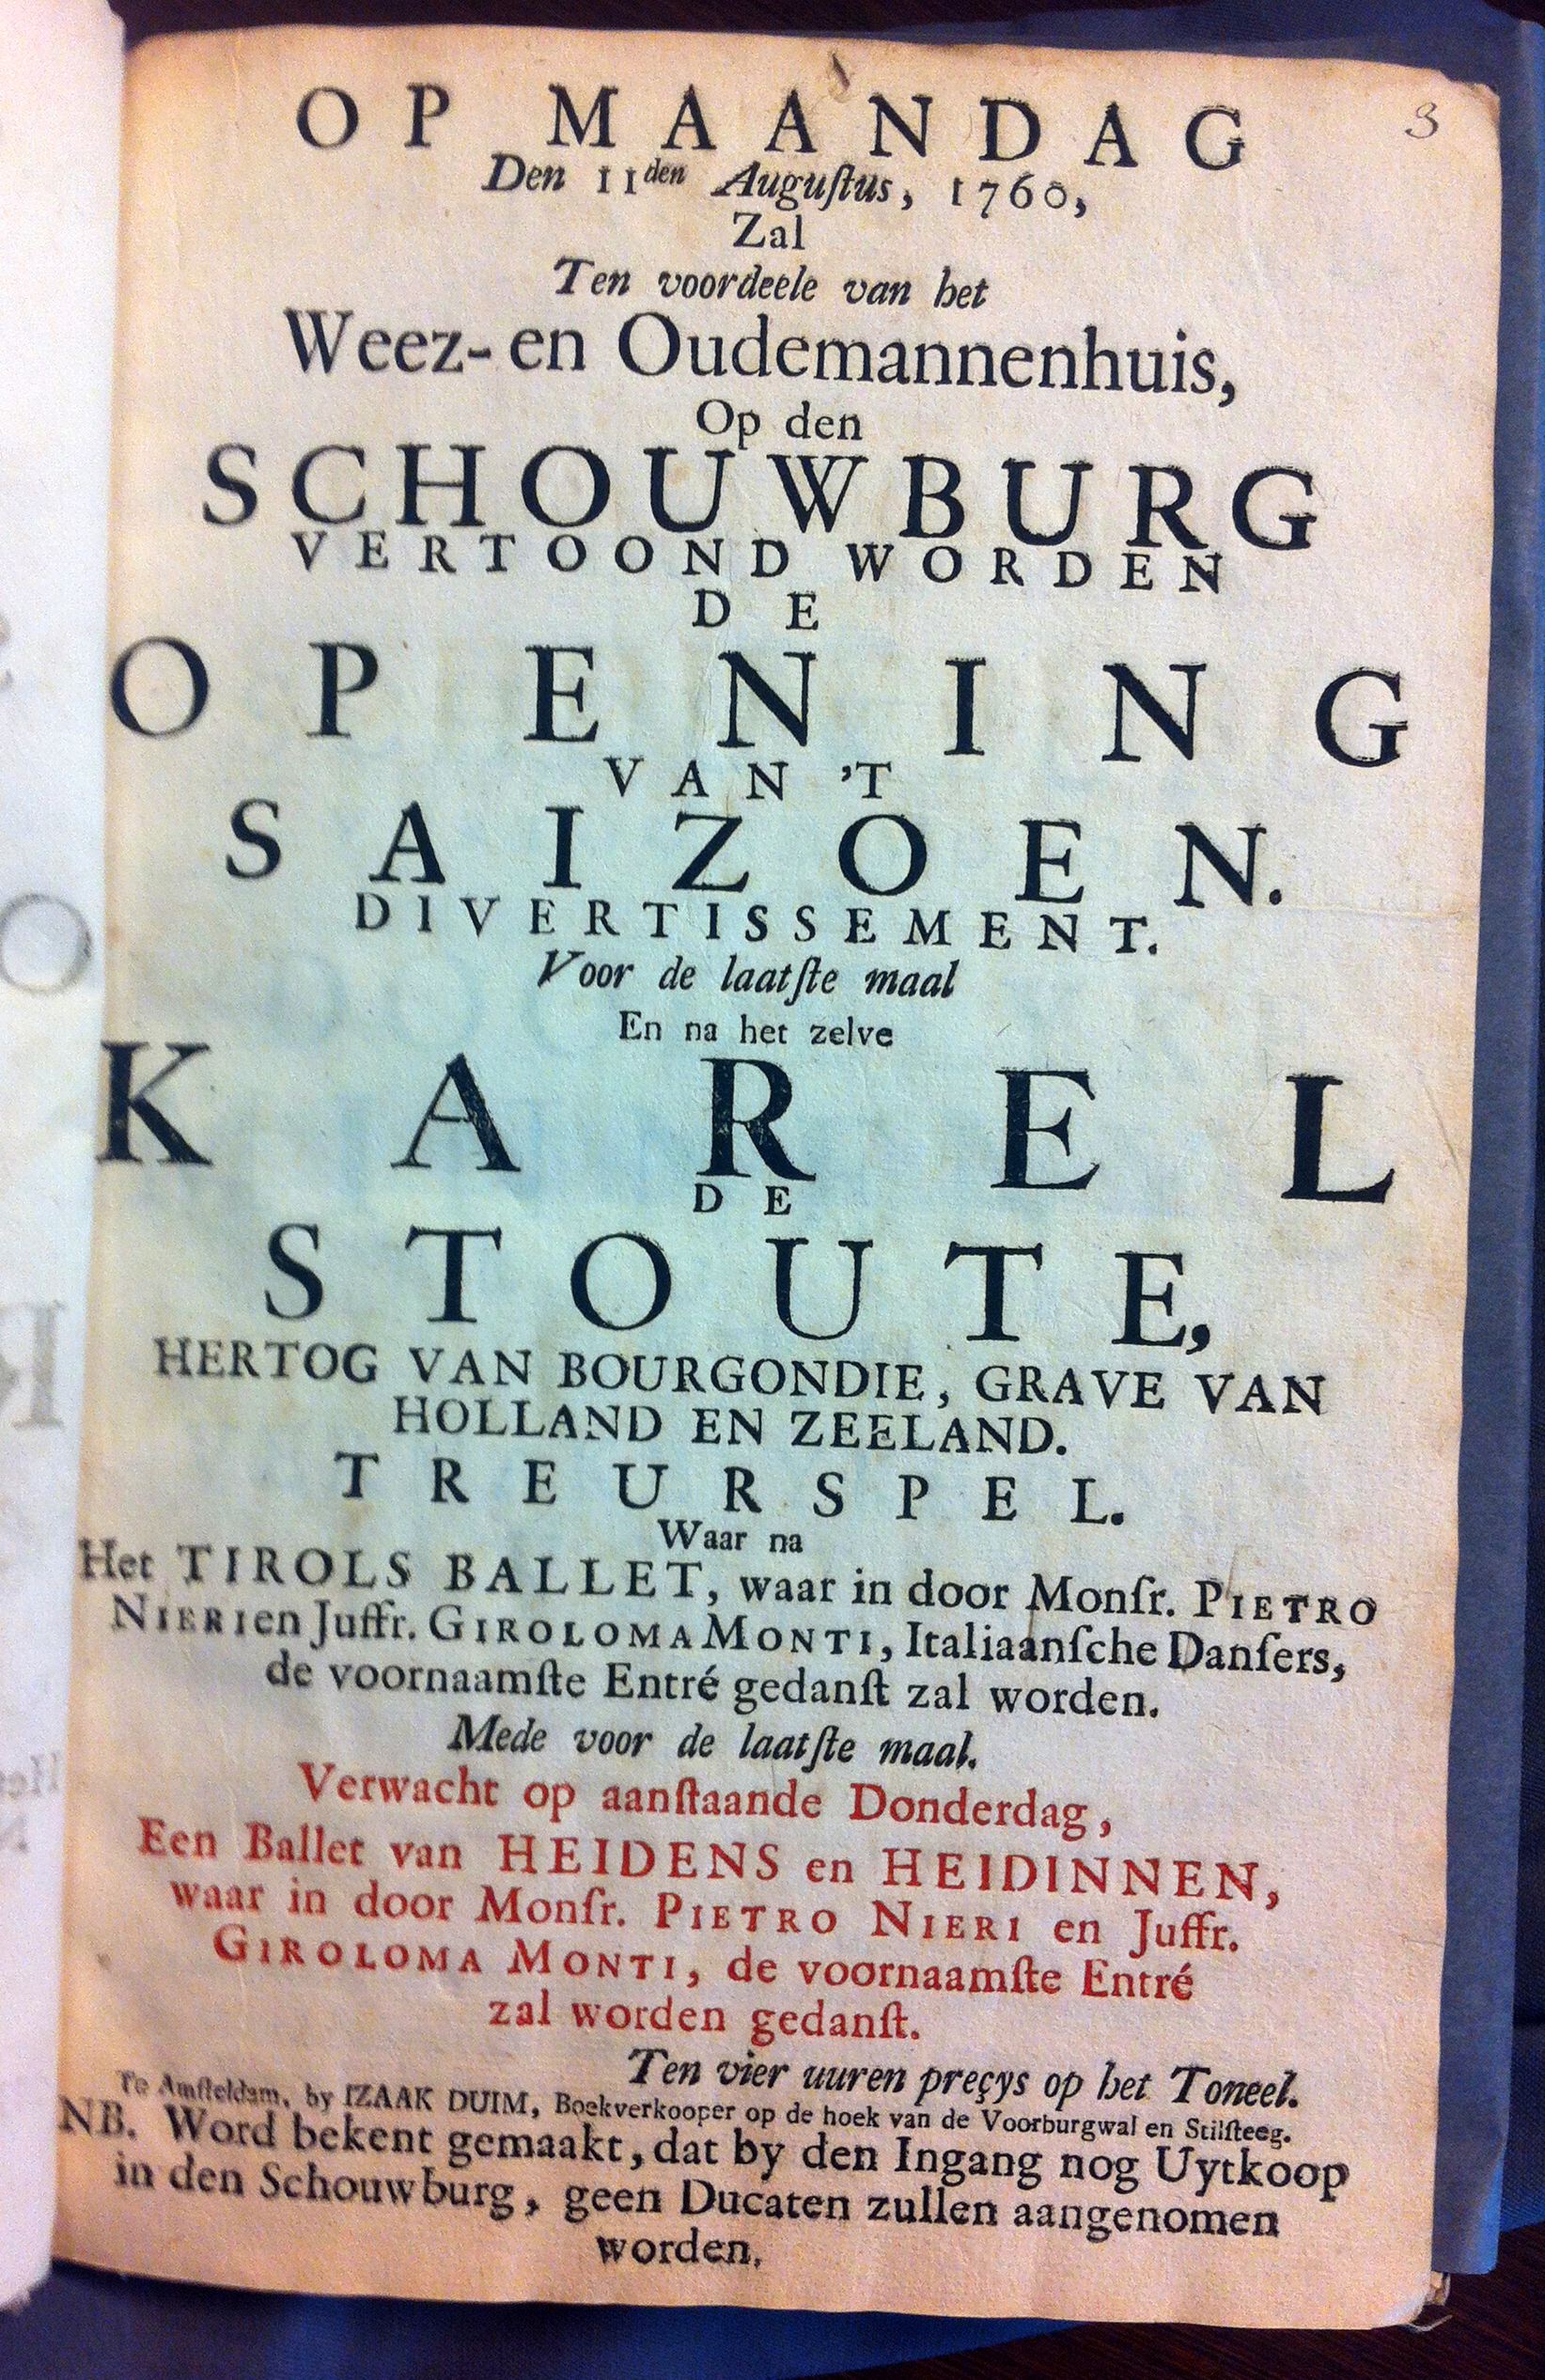 3
OP MAANDAG
Den 11den Auguſtus, 1760,
Zal
Ten voordeele van het
Weez- en Oudemannenhuis,
Op den
SCHOUWBURG
VERTOOND WORDEN
DE
OPENING
VAN 'T
SAIZOEN.
DIVERTISSEMENT.
Voor de laatſte maal
En na het zelve
KAREL
DE
STOUTE,
HERTOG VAN BOURGONDIE, GRAVE VAN
HOLLAND EN ZEELAND.
TREURSPEL.
Waar na
Het TIROLS BALLET, waar in door Monſr. PIETRO
NIERI en Juffr. GIROLOMA MONTI, Italiaanſche Danſers,
de voornaamſte Entré gedanſt zal worden.
Mede voor de laatſte maal.
Verwacht op aanſtaande Donderdag,
Een Ballet van HEIDENS en HEIDINNEN,
waar in door Monſr. PIETRO NIERI en Juffr.
GIROLOMA MONTI, de voornaamſte Entré
zal worden gedanſt.
Ten vier uuren preçys op het Toneel.
Te Amſteldam, by IZAAK DUIM, Boekverkooper op de hoek van de Voorburgwal en Stilſteeg.
NB. Word bekent gemaakt, dat by den Ingang nog Uytkoop
in den Schouwburg, geen Ducaten zullen aangenomen
worden.